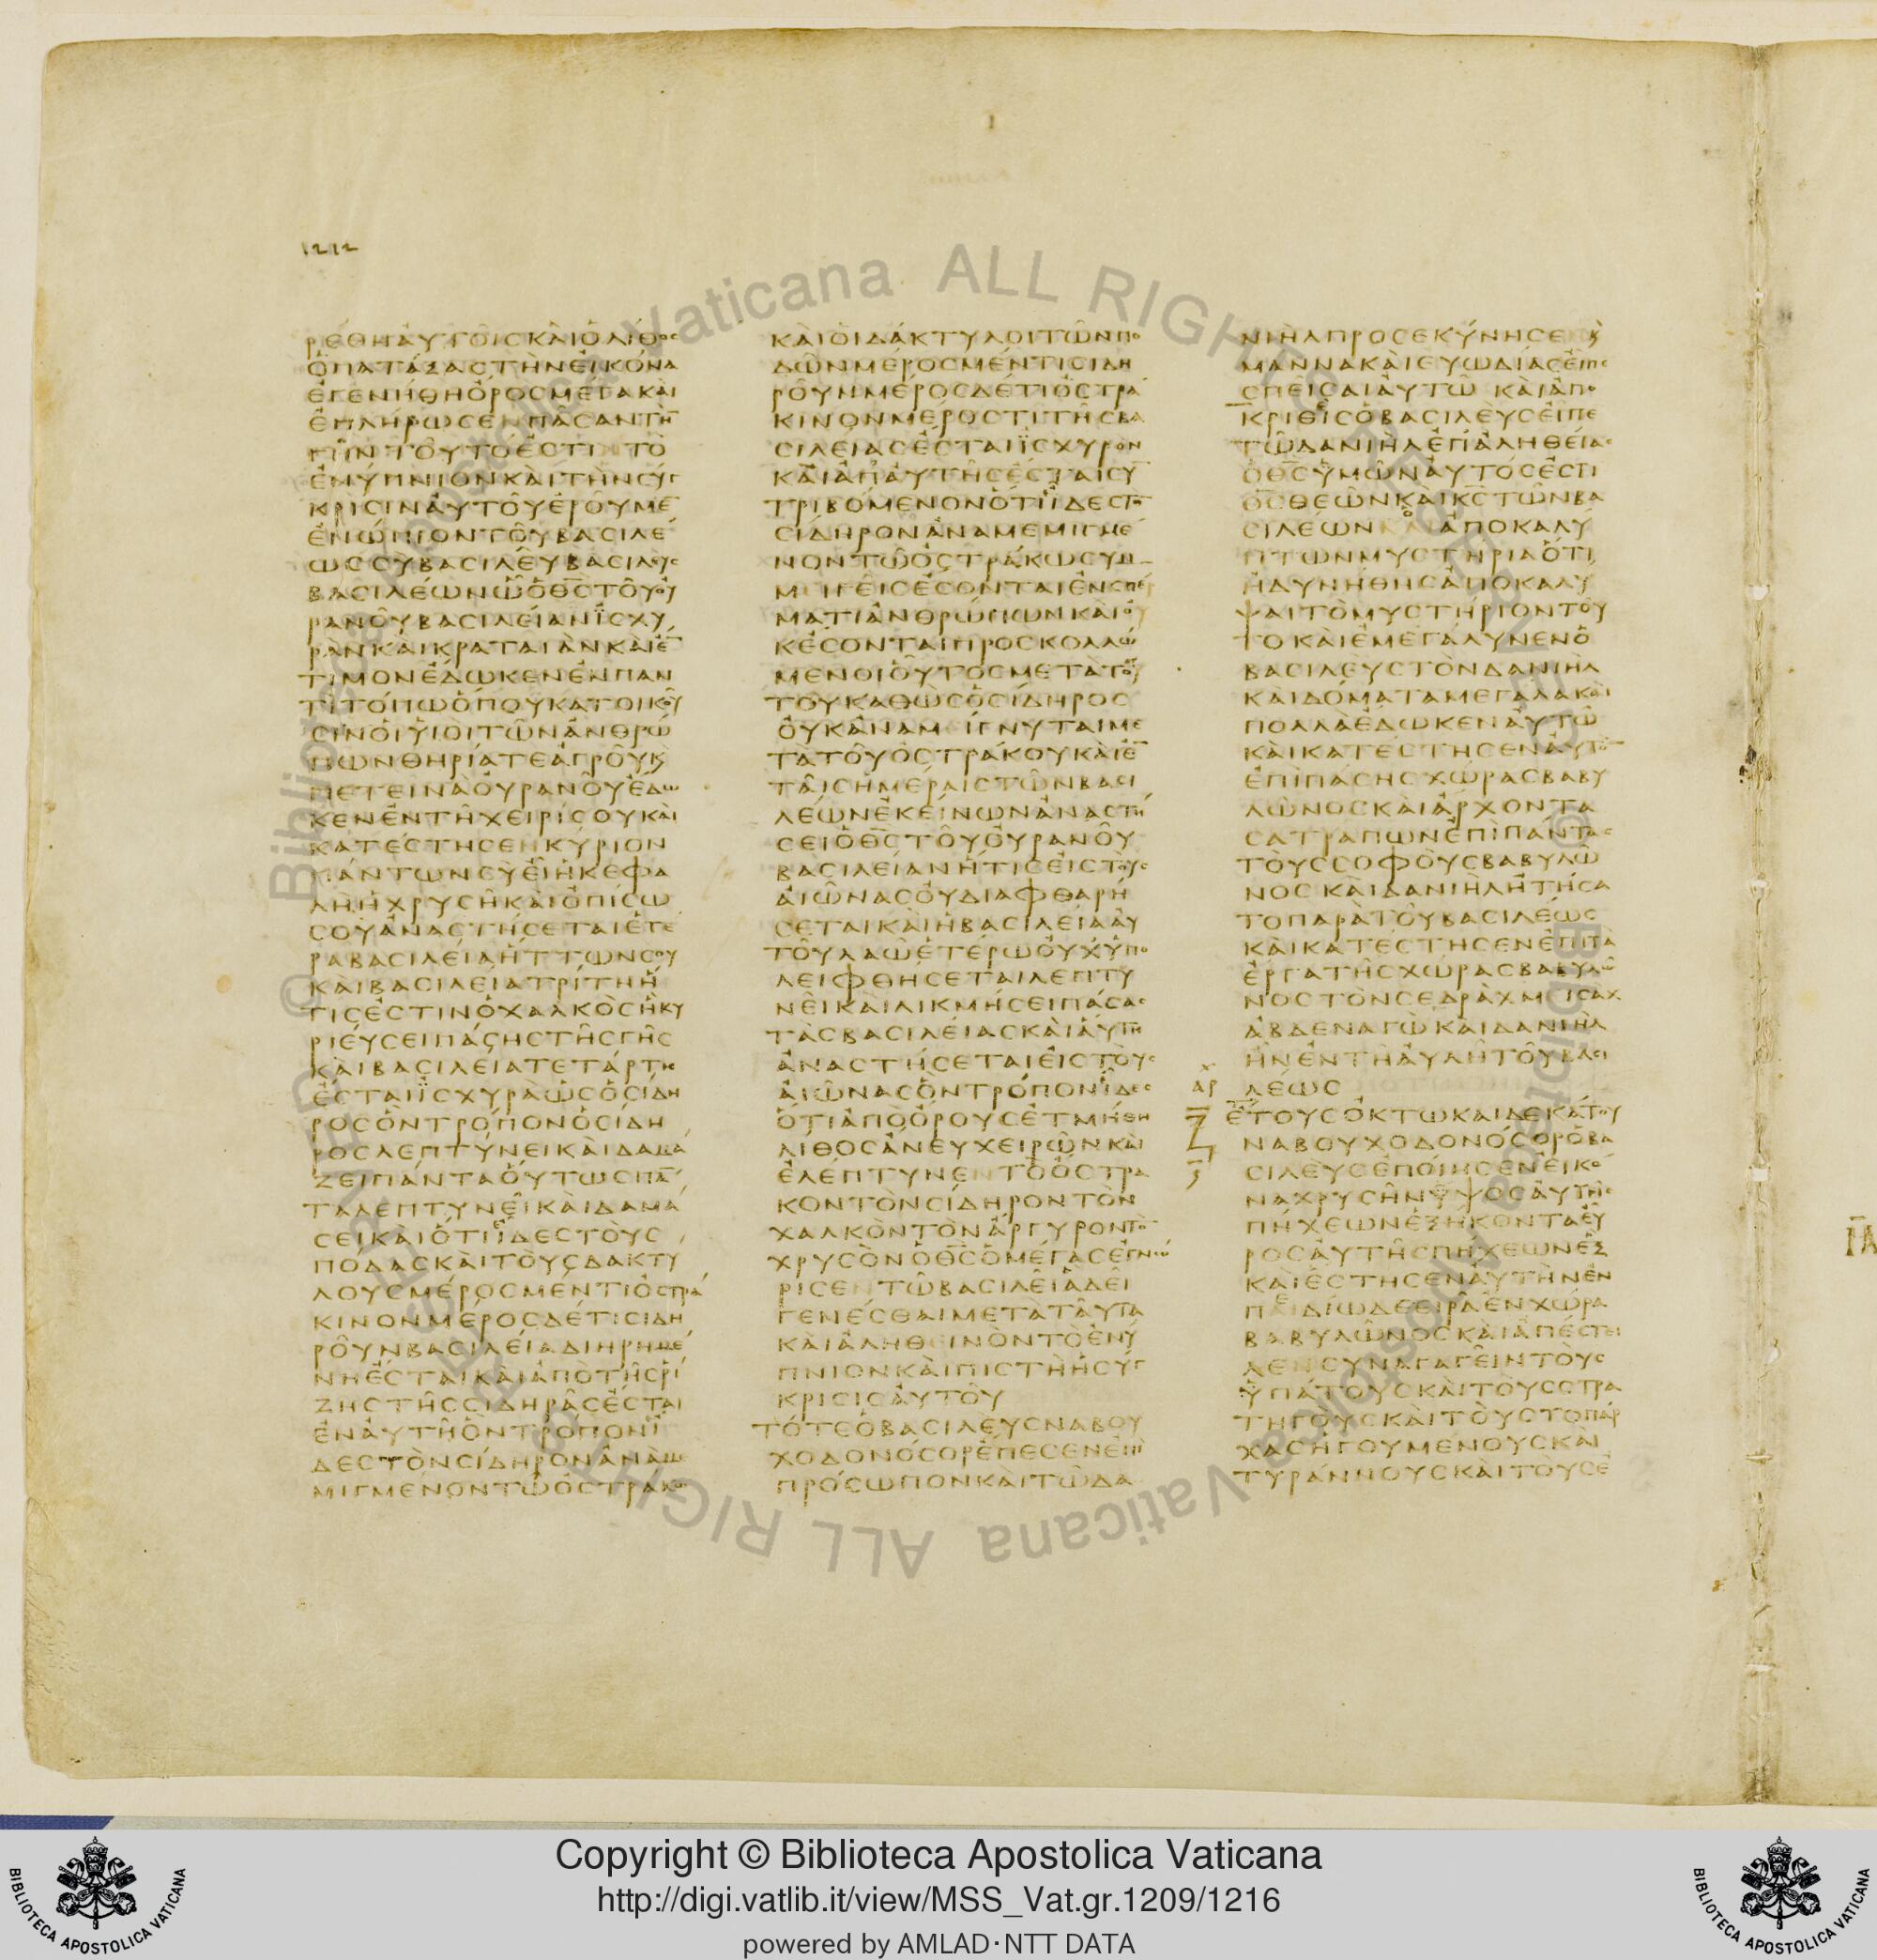 1212
ΡΕΘΗΑΥΤΟΙΣΚΑΙΟΛΙΘΟΣ
ΟΠΑΤΑΞΑΣΤΗΝΕΙΚΟΝΑ
ΕΓΕΝΗΘΗΟΡΟΣΜΕΓΑΚΑΙ
ΕΠΛΗΡΩΣΕΝΠΑΣΑΝΤΗ̅
ΓΗΝΤΟΥΤΟΕΣΤΙΝΤΟ
ΕΝΥΠΝΙΟΝΚΑΙΤΗΝΣΥΓ
ΚΡΙΣΙΝΑΥΤΟΥΕΡΟΥΜΕ̅
ΕΝΩΠΙΟΝΤΟΥΒΑΣΙΛΕ
ΩΣΣΥΒΑΣΙΛΕΥΒΑΣΙΛΕΥΣ
ΒΑΣΙΛΕΩΝΩΟΘ̅Σ̅ΤΟΥΟΥ
ΡΑΝΟΥΒΑΣΙΛΕΙΑΝΙΣΧΥ
ΡΑΝΚΑΙΚΡΑΤΑΙΑΝΚΑΙΕ̅
ΤΙΜΟΝΕΔΩΚΕΝΕΝΠΑΝ
ΤΙΤΟΠΩΟΠΟΥΚΑΤΟΙΚΟΥ
ΣΙΝΟΙΥΙΟΙΤΩΝΑΝΘΡΩ
ΠΩΝΘΗΡΙΑΤΕΑΓΡΟΥΚ
ΠΕΤΕΙΝΑΟΥΡΑΝΟΥΕΔΩ
ΚΕΝΕΝΤΗΧΕΙΡΙΣΟΥΚΑΙ
ΚΑΤΕΣΤΗΣΕΝΚΥΡΙΟΝ
ΠΑΝΤΩΝΣΥΕΙΗΚΕΦΑ
ΛΗΗΧΡΥΣΗΚΑΙΟΠΙΣΩ
ΣΟΥΑΝΑΣΤΗΣΕΤΑΙΕΤΕ
ΡΑΒΑΣΙΛΕΙΑΗΤΤΩΝΣΟΥ
ΚΑΙΒΑΣΙΛΕΙΑΤΡΙΤΗΗ
ΤΙΣΕΣΤΙΝΟΧΑΛΚΟΣΗΚΥ
ΡΙΕΥΣΕΙΠΑΣΗΣΤΗΣΓΗΣ
ΚΑΙΒΑΣΙΛΕΙΑΤΕΤΑΡΤΗ
ΕΣΤΑΙΙΣΧΥΡΑΩΣΟΣΙΔΗ
ΡΟΣΟΝΤΡΟΠΟΝΟΣΙΔΗ
ΡΟΣΛΕΠΤΥΝΕΙΚΑΙΔΑΜΑ
ΖΕΙΠΑΝΤΑΟΥΤΩΣΠΑ̅
ΤΑΛΕΠΤΥΝΕΙΚΑΙΔΑΜΑ
ΣΕΙΚΑΙΟΤΙΙΔΕΣΤΟΥΣ
ΠΟΔΑΣΚΑΙΤΟΥΣΔΑΚΤΥ
ΛΟΥΣΜΕΡΟΣΜΕΝΤΙΟΣΤΡΑ
ΚΙΝΟΝΜΕΡΟΣΔΕΤΙΣΙΔΗ
ΡΟΥΝΒΑΣΙΛΕΙΑΔΙΗΡΗΜΕ
ΝΗΕΣΤΑΙΚΑΙΑΠΟΤΗΣΡΙ
ΖΗΣΤΗΣΣΙΔΗΡΑΣΕΣΤΑΙ
ΕΝΑΥΤΗΟΝΤΡΟΠΟΝΙ
ΔΕΣΤΟΝΣΙΔΗΡΟΝΑΝΑΜΕ
ΜΙΓΜΕΝΟΝΤΩΟΣΤΡΑΚΩ
ΚΑΙΟΙΔΑΚΤΥΛΟΙΤΩΝΠΟ
ΔΩΝΜΕΡΟΣΜΕΝΤΙΣΙΔΗ
ΡΟΥΝΜΕΡΟΣΔΕΤΙΟΣΤΡΑ
ΚΙΝΟΝΜΕΡΟΣΤΙΤΗΣΒΑ
ΣΙΛΕΙΑΣΕΣΤΑΙΙΣΧΥΡΟΝ
ΚΑΙΑΠΑΥΤΗΣΕΣΤΑΙΣΥ̅
ΤΡΙΒΟΜΕΝΟΝΟΤΙΙΔΕΣΤΟ̅
ΣΙΔΗΡΟΝΑΝΑΜΕΜΙΓΜΕ
ΝΟΝΤΩΟΣΤΡΑΚΩΣΥΜ
ΜΙΓΕΙΣΕΣΟΝΤΑΙΕΝΣΠΕΡ
ΜΑΤΙΑΝΘΡΩΠΩΝΚΑΙΟΥ
ΚΕΣΟΝΤΑΙΠΡΟΣΚΟΛΛΩ
ΜΕΝΟΙΟΥΤΟΣΜΕΤΑΤΟΥ
ΤΟΥΚΑΘΩΣΟΣΙΔΗΡΟΣ
ΟΥΚΑΝΑΜΙΓΝΥΤΑΙΜΕ
ΤΑΤΟΥΟΣΤΡΑΚΟΥΚΑΙΕ̅
ΤΑΙΣΗΜΕΡΑΙΣΤΩΝΒΑΣΙ
ΛΕΩΝΕΚΕΙΝΩΝΑΝΑΣΤΗ
ΣΕΙΟΘ̅Σ̅ΤΟΥΟΥΡΑΝΟΥ
ΒΑΣΙΛΕΙΑΝΗΤΙΣΕΙΣΤΟΥΣ
ΑΙΩΝΑΣΟΥΔΙΑΦΘΑΡΗ
ΣΕΤΑΙΚΑΙΗΒΑΣΙΛΕΙΑΑΥ
ΤΟΥΛΑΩΕΤΕΡΩΟΥΧΥΠΟ
ΛΕΙΦΘΗΣΕΤΑΙΛΕΠΤΥ
ΝΕΙΚΑΙΛΙΚΜΗΣΕΙΠΑΣΑΣ
ΤΑΣΒΑΣΙΛΕΙΑΣΚΑΙΑΥΤΗ
ΑΝΑΣΤΗΣΕΤΑΙΕΙΣΤΟΥΣ
ΑΙΩΝΑΣΟΝΤΡΟΠΟΝΙΔΕΣ
ΟΤΙΑΠΟΟΡΟΥΣΕΤΜΗΘΗ
ΛΙΘΟΣΑΝΕΥΧΕΙΡΩΝΚΑΙ
ΕΛΕΠΤΥΝΕΝΤΟΟΣΤΡΑ
ΚΟΝΤΟΝΣΙΔΗΡΟΝΤΟΝ
ΧΑΛΚΟΝΤΟΝΑΡΓΥΡΟΝΤΟ̅
ΧΡΥΣΟΝΟΘ̅Σ̅ΟΜΕΓΑΣΕΓΝΩ
ΡΙΣΕΝΤΩΒΑΣΙΛΕΙΑΔΕΙ
ΓΕΝΕΣΘΑΙΜΕΤΑΤΑΥΤΑ
ΚΑΙΑΛΗΘΕΙΝΟΝΤΟΕΝΥ
ΠΝΙΟΝΚΑΙΠΙΣΤΗΗΣΥΓ
ΚΡΙΣΙΣΑΥΤΟΥ
ΤΟΤΕΟΒΑΣΙΛΕΥΣΝΑΒΟΥ
ΧΟΔΟΝΟΣΟΡΕΠΕΣΕΝΕΠΙ
ΠΡΟΣΩΠΟΝΚΑΙΤΩΔΑ
ΝΙΗΛΠΡΟΣΕΚΥΝΗΣΕΝΚ
ΜΑΝΝΑΚΑΙΕΥΩΔΙΑΣΕΙΠΕ
ΣΠΕΙΣΑΙΑΥΤΩ ΚΑΙΑΠΟ
ΚΡΙΘΕΙΣΟΒΑΣΙΛΕΥΣΕΙΠΕ
ΤΩΔΑΝΙΗΛΕΠΑΛΗΘΕΙΑΣ
ΟΘ̅Σ̅ΥΜΩΝΑΥΤΟΣΕΣΤΙ
ΘΣΘΕΩΝΚΑΙΚ̅Σ̅ΤΩΝΒΑ
ΣΙΛΕΩΝΚΑΙΟΑΠΟΚΑΛΥ
ΠΤΩΝΜΥΣΤΗΡΙΑΟΤΙ
ΗΔΥΝΗΘΗΣΑΠΟΚΑΛΥ
ΨΑΙΤΟΜΥΣΤΗΡΙΟΝΤΟΥ
ΤΟΚΑΙΕΜΕΓΑΛΥΝΕΝΟ
ΒΑΣΙΛΕΥΣΤΟΝΔΑΝΙΗΛ
ΚΑΙΔΟΜΑΤΑΜΕΓΑΛΑΚΑΙ
ΠΟΛΛΑΕΔΩΚΕΝΑΥΤΩ
ΚΑΙΚΑΤΕΣΤΗΣΕΝΑΥΤΟ̅
ΕΠΙΠΑΣΗΣΧΩΡΑΣΒΑΒΥ
ΛΩΝΟΣΚΑΙΑΡΧΟΝΤΑ
ΣΑΤΡΑΠΩΝΕΠΙΠΑΝΤΑΣ
ΤΟΥΣΣΟΦΟΥΣΒΑΒΥΛΩ
ΝΟΣΚΑΙΔΑΝΙΗΛΗΤΗΣΑ
ΤΟΠΑΡΑΤΟΥΒΑΣΙΛΕΩΣ
ΚΑΙΚΑΤΕΣΤΗΣΕΝΕΠΙΤΑ
ΕΡΓΑΤΗΣΧΩΡΑΣΒΑΒΥΛΩ
ΝΟΣΤΟΝΣΕΔΡΑΧΜΙΣΑΧ
ΑΒΔΕΝΑΓΩΚΑΙΔΑΝΙΗΛ
ΗΝΕΝΤΗΑΥΛΗΤΟΥΒΑΣΙ
ΛΕΩΣ
ΕΤΟΥΣΟΚΤΩΚΑΙΔΕΚΑΤΟΥ
ΝΑΒΟΥΧΟΔΟΝΟΣΟΡΟΒΑ
ΣΙΛΕΥΣΕΠΟΙΗΣΕΝΕΙΚΟ
ΝΑΧΡΥΣΗΝΥΨΟΣΑΥΤΗΣ
ΠΗΧΕΩΝΕΞΗΚΟΝΤΑΕΥ
ΡΟΣΑΥΤΗΣΠΗΧΕΩΝΕΞ
ΚΑΙΕΣΤΗΣΕΝΑΥΤΗΝΕΝ
ΠΕΔΙΩΔΕΕΙΡΑΕΝΧΩΡΑ
ΒΑΒΥΛΩΝΟΣΚΑΙΑΠΕΣΤΕΙ
ΛΕΝΣΥΝΑΓΑΓΕΙΝΤΟΥΣ
ΥΠΑΤΟΥΣΚΑΙΤΟΥΣΣΤΡΑ
ΤΗΓΟΥΣΚΑΙΤΟΥΣΤΟΠΑΡ
ΧΑΣΗΓΟΥΜΕΝΟΥΣΚΑΙ
ΤΥΡΑΝΝΟΥΣΚΑΙΤΟΥΣΕ
Copyright © Biblioteca Apostolica Vaticana
http://digi.vatlib.it/view/MSS_Vat.gr.1209/1216
powered by AMLAD·NTT DATA
BIBLIOTECA APOSTOLICA VATICANA
BIBLIOTECA APOSTOLICA VATICANA